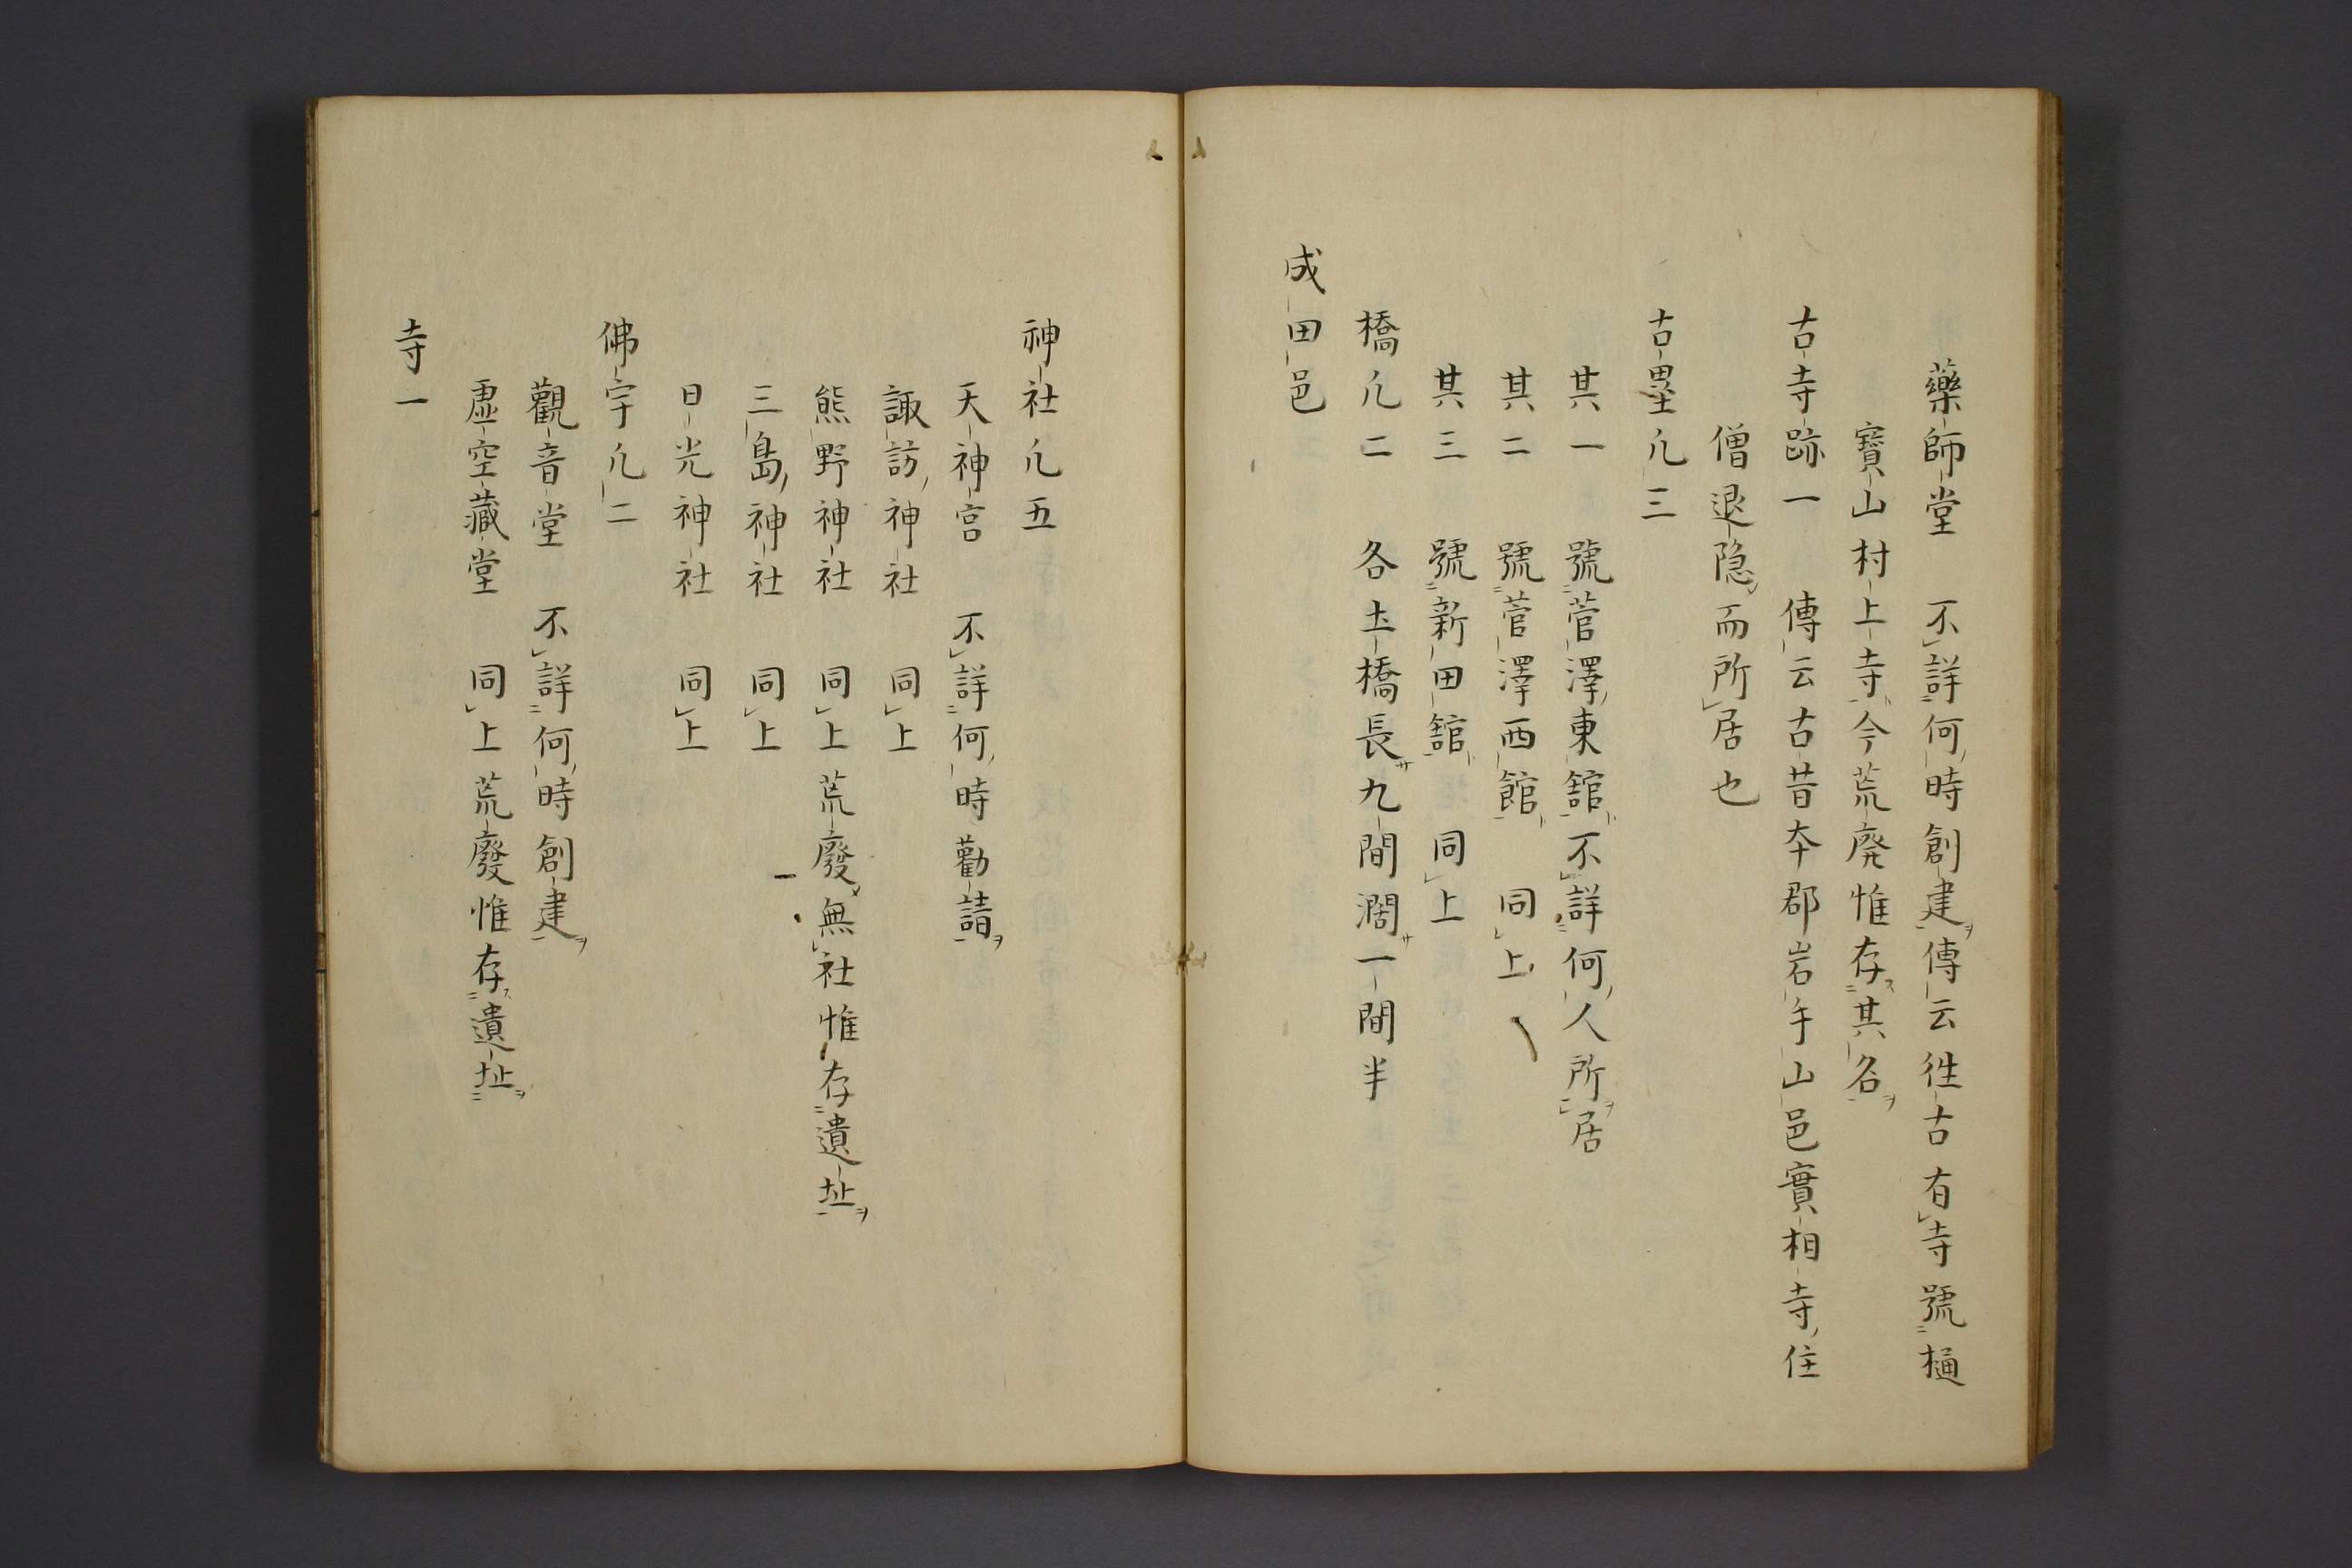 藥師堂　不詳何時創建傳云徃古有寺號樋
寶山村上寺今荒廃惟存其名
古寺跡一　傳云古昔夲郡岩手山邑實相寺住
僧退隐而所居也
古壘凢三
其一　號菅澤東舘不詳何人所居
其二　號菅澤西館　同上
其三　號新田舘　同上
橋凢二　各土橋長九間濶一間半
成田邑
神社凢五
天神宮　不詳何時勸請
諏訪神社　同上
熊野神社　同上荒廢無社惟存遺址
三島神社　同上
日光神社　同上
佛宇凢二
觀音堂　不詳何時創建
虛空藏堂　同上荒廢惟存遺址
寺一